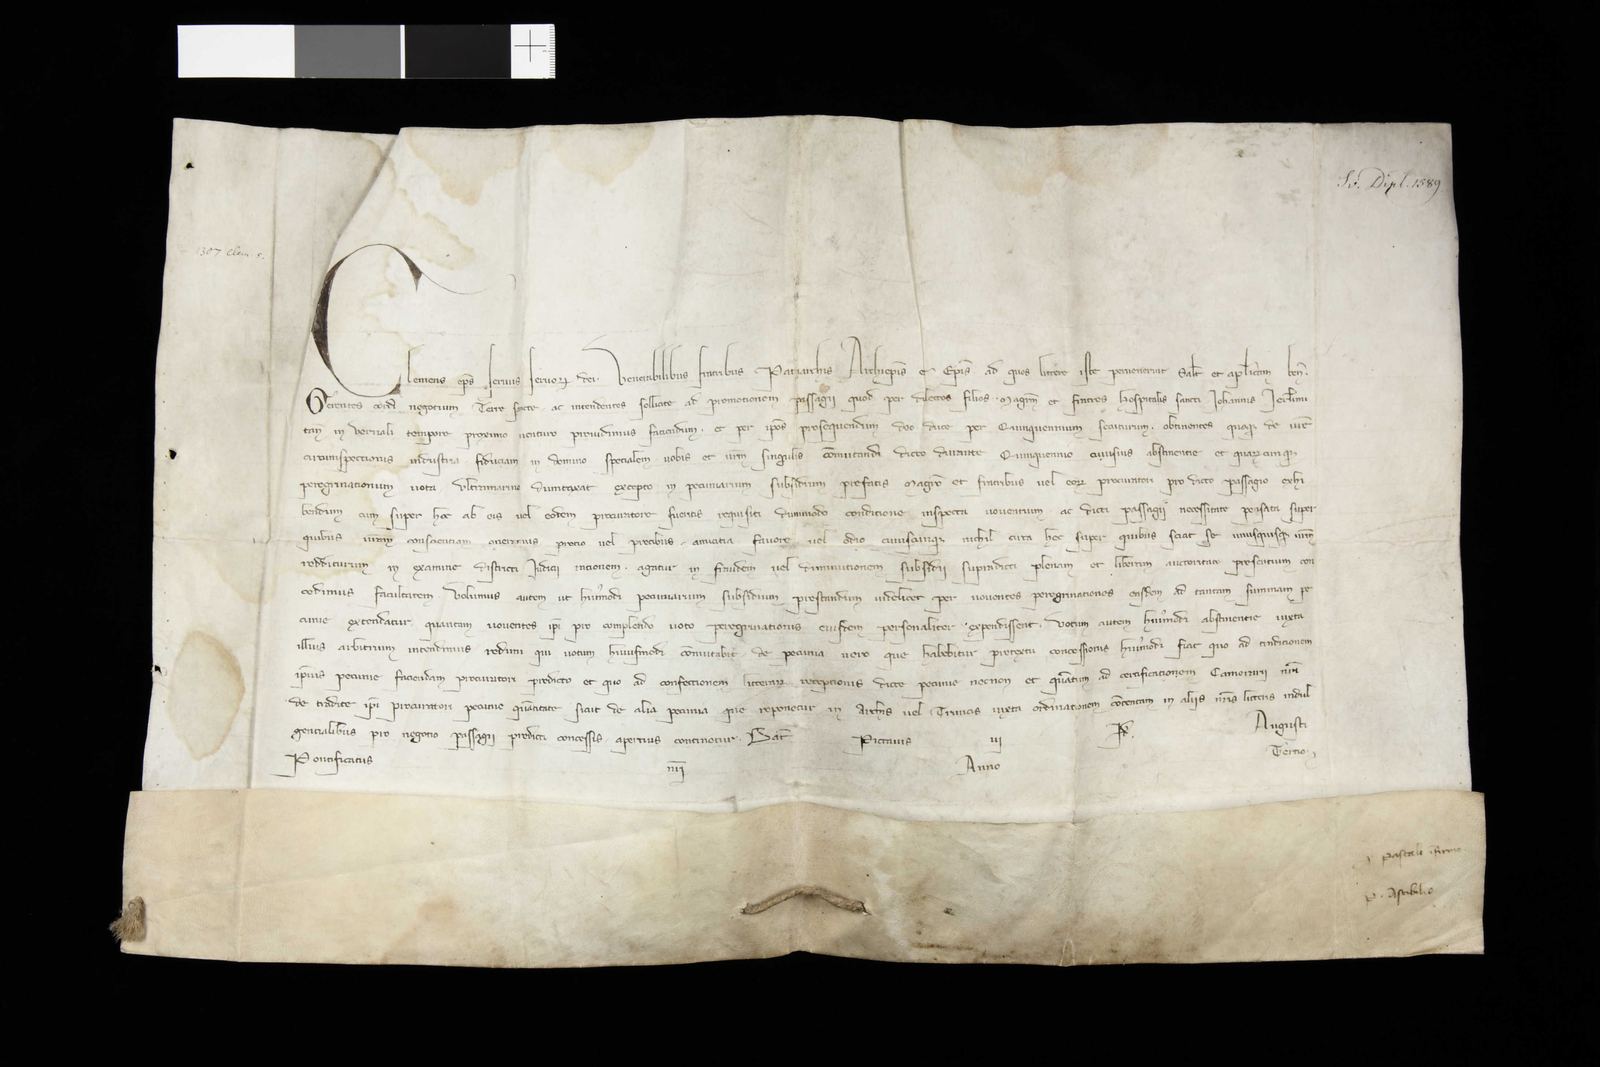 Sv. Dipl. 1589
1307 Clem. 5.
Clemens ep̄s servus servoꝝ dei. Venerabilibus fratribus Patriarchis Archiep̄is et Ep̄is ad quos littere iste pervenerint Salt̄ et ap̄licam ben̄.
Gerentes cordi negotium Terre sancte, ac intendentes sollicite ad promotionem passagii quod per dilectos filios Magr̄m et fratres Hospitalis sancti Johannis Jerl̄imi
tan̄ in vernali tempore proximo venturo providimus faciendum, et per ip̄os prosequendum deo duce per Quinquennium secuturum, obtinentes quoqꝫ de vr̄e
circumspectionis industria fiduciam in domino specialem, vobis et vr̄m singulis co̅mutandi dicto durante Quinquennio cuiusvis abstinentie et quarumcumqꝫ
peregrinationum vota, Ultramarino dumtaxat excepto, in pecuniarium subsidium prefatis Magr̄o et fratribus vel eoꝝ procuratori pro dicto passagio exhi
bendum cum super hoc ab eis vel eodem procuratore fueritis requisiti dummodo conditione inspecta voventium, ac dicti passagii necessitate pensata super
quibus vr̄am conscientiam oneramus precio vel precibus, amicitia favore, vel odio cuiuscumqꝫ nichil circa hec super quibus sciat se unusquisqꝫ vr̄m
redditurum in examine districti Judicii rationem, agatur in fraudem vel diminutionem subsidii supradicti plenam et liberam auctoritate presentium con
cedimus facultatem. Volumus autem ut huiusmodi pecuniarium subsidium prestandum videlicet per voventes peregrinationes easdem ad tantam summam pe
cunie extendatur, quantam voventes ip̄i pro complendo voto peregrinationis eiusdem personaliter expendissent. Votum autem huiusmodi abstinentie iuxta
illius arbitrium intendimus redimi qui votum huiusmodi co̅mutabit, de pecunia vero que habebitur pretextu concessionis huiusmodi fiat quo ad traditionem
ip̄ius pecunie faciendam procuratori predicto et quo ad confectionem litteraꝝ receptionis dicte pecunie necnon et quantum ad certificationem Camerarii nr̄i
de tradite ip̄i procuratori pecunie quantitate sicut de alia pecunia que reponetur in Archis vel Truncis iuxta ordinationem contentam in aliis nr̄is litteris indul
gentialibus pro negotio passagii predicti concessis, apertius continetur. Dat̄ Pictavis iij Kl̄. Augusti
Pontificatus nr̄i Anno Tertio
P. Asthilio